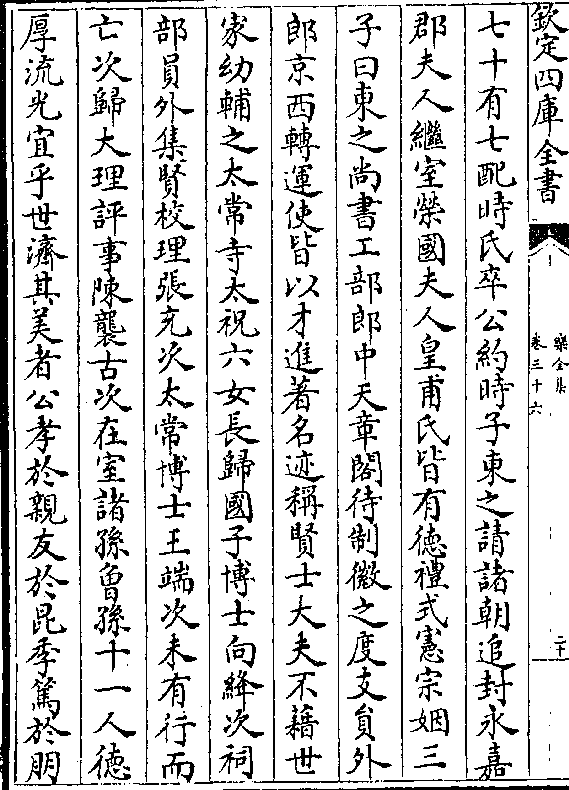 欽定四庫全書
樂全集
卷三十六
二十
七十有七配時氏卒公約時子東之請諸朝追封永嘉
郡夫人繼室榮國夫人皇甫氏皆有德禮式憲宗姻三
子曰東之尚書工部郎中天章閣待制徽之度支員外
郎京西轉運使皆以才進著名迹稱賢士大夫不藉世
家幼輔之太常寺太祝六女長歸國子博士向絳次祠
部員外集賢校理張充次太常博士王端次未有行而
亡次歸大理評事陳襲古次在室諸孫曾孫十一人德
厚流光宜乎世濟其美者公孝於親友於昆季篤於朋